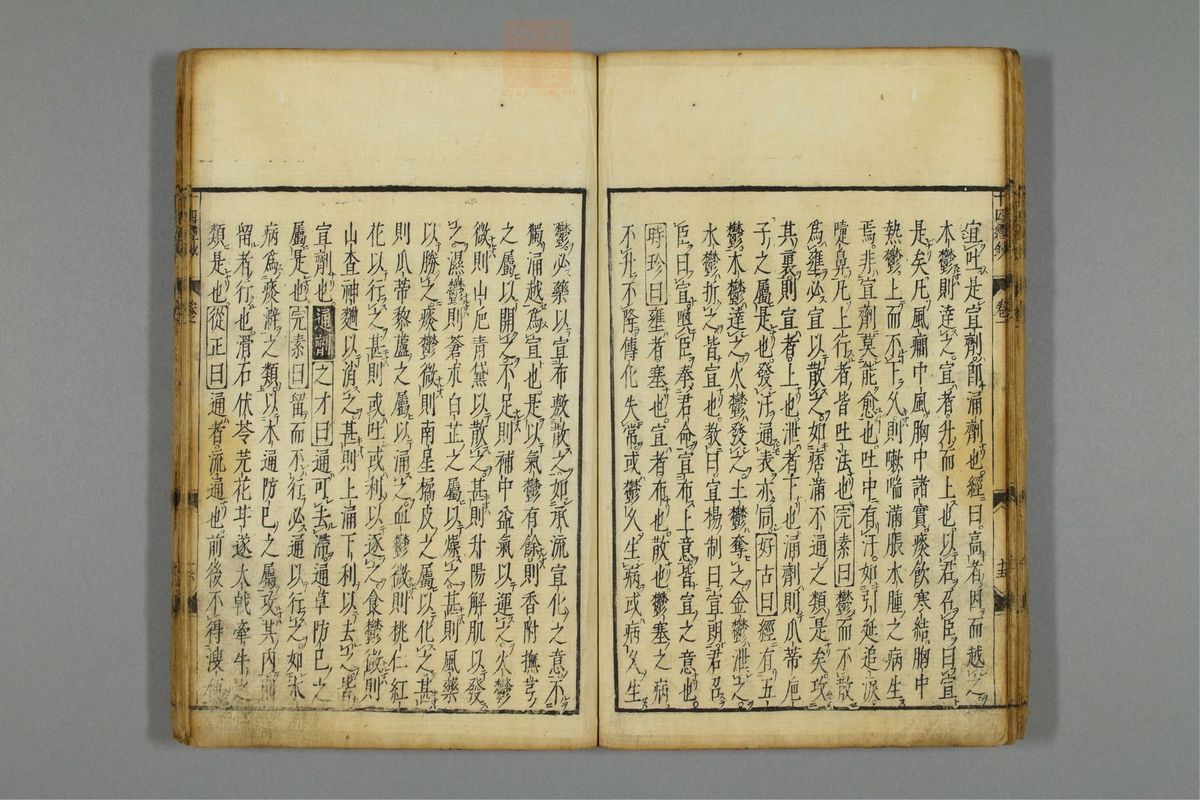 宜吐是宣劑即涌劑也經曰高者因而越之
木鬱則達之宣者升而上也以君召臣曰宣
是矣凡風癇中風胸中諸實痰飲寒結胸中
熱鬱上而不下久則嗽喘滿脹水腫之病生
焉非宣劑莫能愈也吐中有汗如引延追淚
嚏鼻凡上行者皆吐法也完素曰鬱而不散
為壅必宣以散之如痞滿不通之類是矣攻
其裏則宣者上也泄者下也涌劑則瓜蒂梔
子之屬是也發汗通表亦同好古曰經有五
鬱木鬱達之火鬱發之土鬱奪之金鬱泄之
水鬱折之皆宣也教曰宣楊制曰宣朗君召
臣曰宣喚臣奉君命宣布上意皆宣之意也
時珍曰壅者塞也宣者布也散也鬱塞之病
不升不降傳化失常或鬱久生病或病久生
鬱必藥以宣布敷散之如承流宣化之意不
獨涌越為宣也是以氣鬱有餘則香附撫芎
之屬以開之不足則補中益氣以運之火鬱
微則山梔青黛以散之甚則升陽解肌以發
之濕鬱則蒼朮白芷之屬以燥之甚則風藥
以勝之痰鬱微則南星橘皮之屬以化之甚
則瓜蒂藜蘆之屬以涌之血鬱微則桃仁紅
花以行之甚則或吐或利以逐之食鬱微則
山查神麯以消之甚則上涌下利以去之皆
宣劑也通劑之才曰通可去滯通草防已之
屬是也完素曰留而不行必通以行之如水
病為痰澼之類以木通防已之屬攻其內則
留者行也滑石伏苓芫花甘遂大戟牽牛之
類是也從正曰通者流通也前後不得溲便
十四經抄
卷一